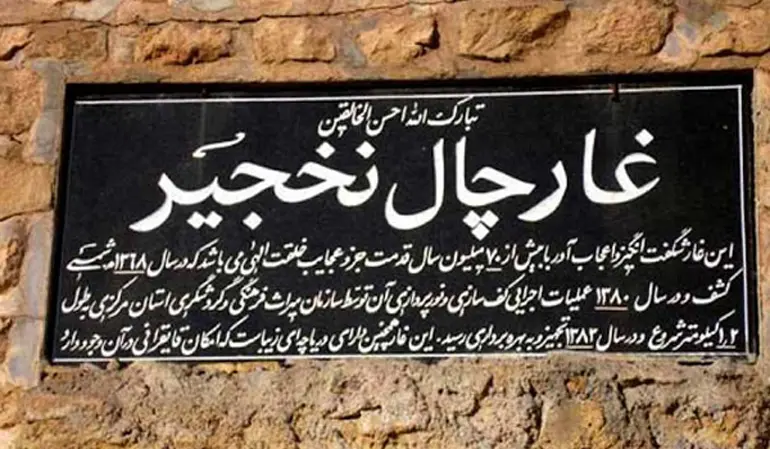 تبارک الله احسن الخالقین
غار چال نخجیر
این غار شگفت انگیز و اعجاب آور با بیش از ۷۰ میلیون سال قدمت جزو عجایب خلقت الهی می باشد که در سال ۱۳۶۸ شمسی
کشف و در سال ۱۳۸۰ عملیات اجرایی کف سازی و نورپردازی آن توسط سازمان میراث فرهنگی و گردشگری استان مرکزی بطول
۱.۲ کیلومتر شروع و در سال ۱۳۸۲ تجهیز و به بهره برداری رسید. این غار همچنین دارای دریاچه ای زیباست که امکان قایقرانی در آن وجود دارد